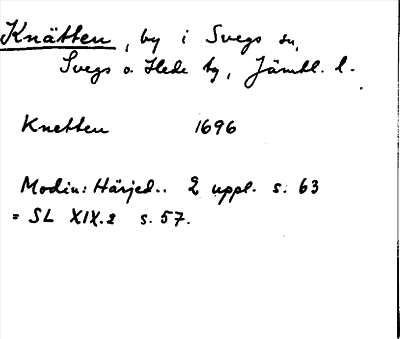 Knätten, by i Svegs sn,
Svegs o. Hede tg, Jämtl. l.
Knetten 1696
Modin: Härjed.. 2 uppl. s. 63
= SL XIX.2 s. 57.